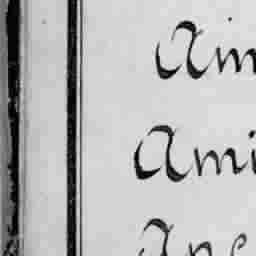 Aim
Ami
Ane